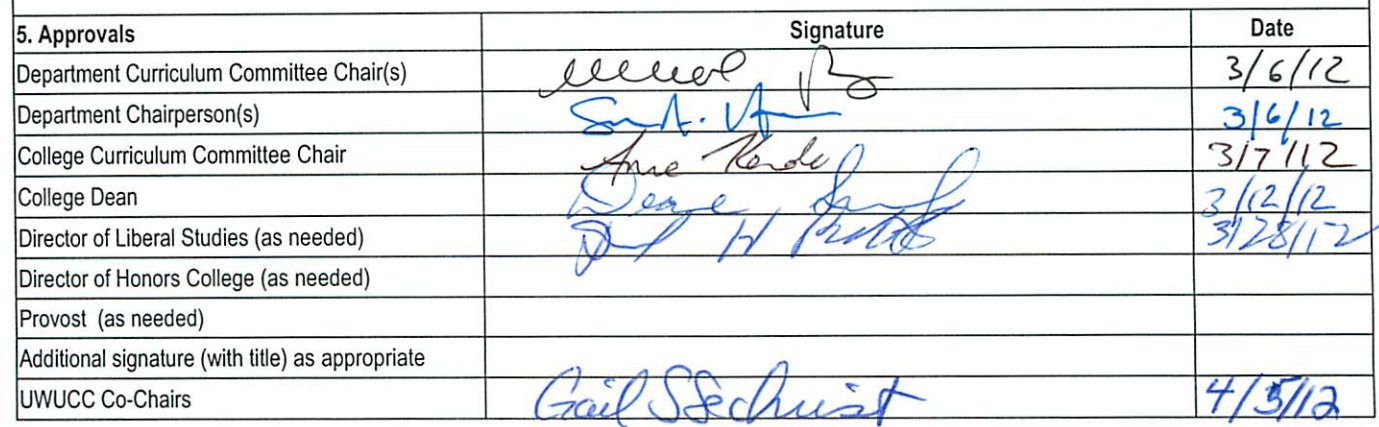 5. Approvals Signature Date
Department Curriculum Committee Chair(s) 3/6/12
Department Chairperson(s) 3/6/12
College Curriculum Committee Chair Anne Kondo 3/7/12
College Dean Deane 3/12/12
Director of Liberal Studies (as needed) H 3/28/12
Director of Honors College (as needed)
Provost (as needed)
Additional signature (with title) as appropriate
UWUCC Co-Chairs Gail S Sechrist 4/3/12